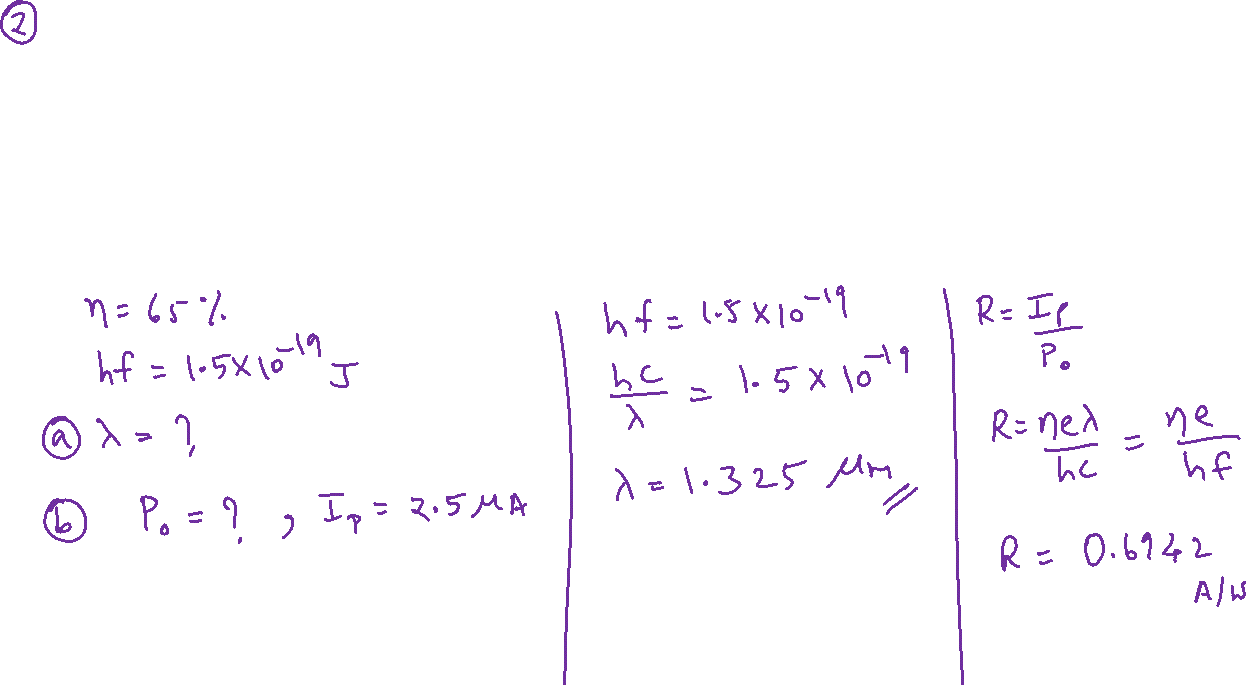 ②
η = 65%
hf = 1.5×10⁻¹⁹ J
ⓐ λ = ?
ⓑ P₀ = ? , Iₚ = 2.5 μA
hf = 1.5 × 10⁻¹⁹
hc/λ = 1.5 × 10⁻¹⁹
λ = 1.325 μm
R = Iₚ/P₀
R = ηeλ/hc = ηe/hf
R = 0.6942
A/W